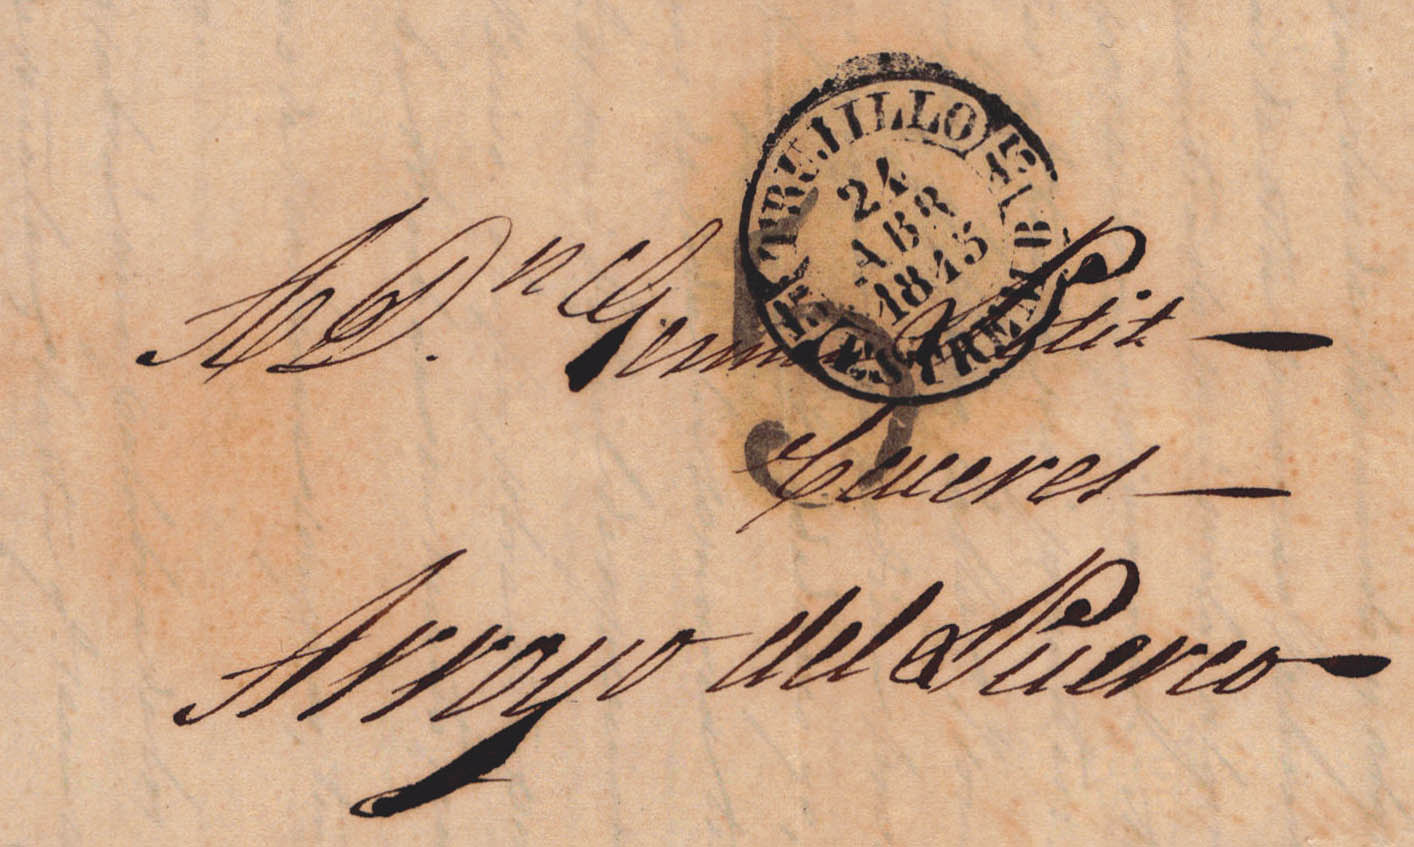 TRUJILLO
24
ABR
1845
ESTREM. B.
A D.n German Petit
Caceres
Arroyo del Puerco
5